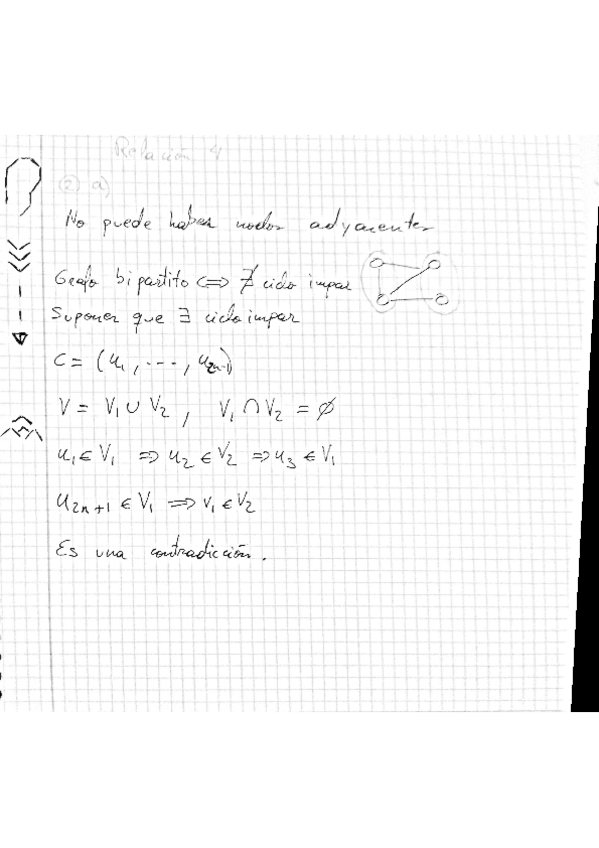 Relación 4
② a)
No puede haber nodos adyacentes
Grafo bipartito ⟺ ∄ ciclo impar
Suponer que ∃ ciclo impar
C = (u₁, ---, u₂ₙ₊₁)
V = V₁ ∪ V₂ , V₁ ∩ V₂ = ∅
u₁ ∈ V₁ ⟹ u₂ ∈ V₂ ⟹ u₃ ∈ V₁
u₂ₙ₊₁ ∈ V₁ ⟹ v₁ ∈ V₂
Es una contradicción.